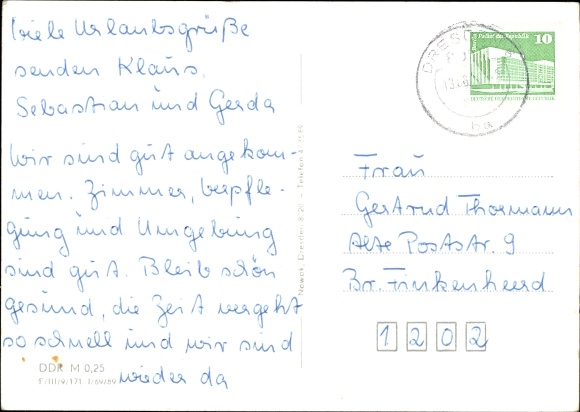 Viele Urlaubsgrüße
senden Klaus,
Sebastian und Gerda
Wir sind gut angekom-
men. Zimmer, Verpfle-
gung und Umgebung
sind gut. Bleib schön
gesund, die Zeit vergeht
so schnell und wir sind
wieder da
DDR M 0,25
Berlin Palast der Republik
10
DEUTSCHE DEMOKRATISCHE REPUBLIK
DRES
Frau
Gertrud Thormann
Alte Poststr. 9
Br. Finkenheerd
1202